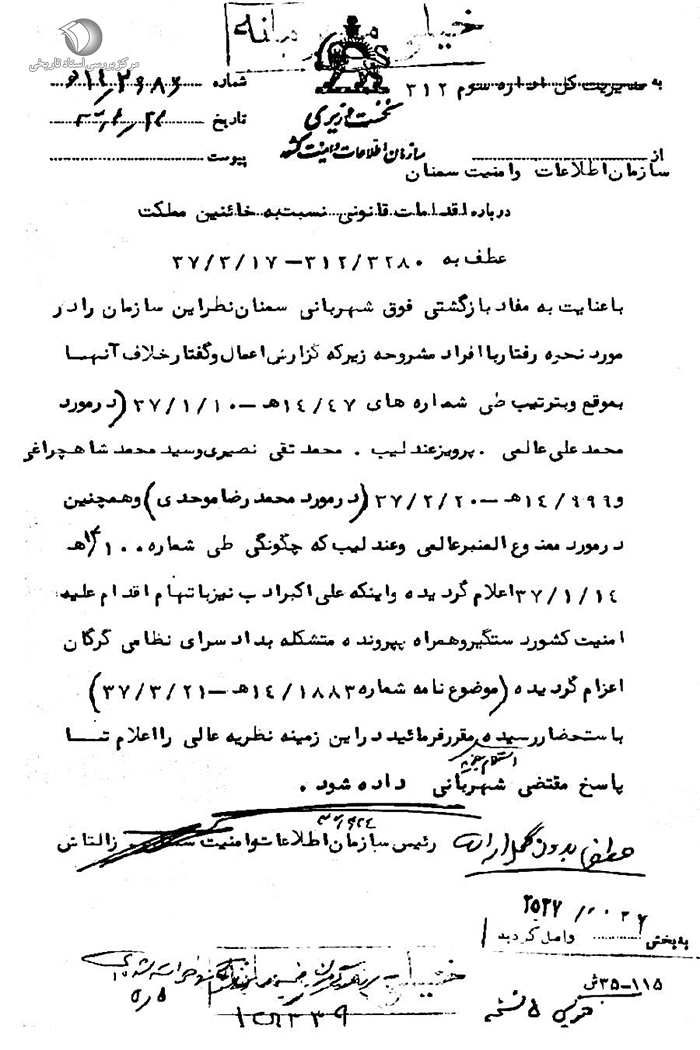 خیلی محرمانه
مرکز بررسی اسناد تاریخی
به مدیریت کل اداره سوم ۳۱۲
شماره
نخست وزیری
تاریخ
سازمان اطلاعات و امنیت کشور
پیوست
از
سازمان اطلاعات و امنیت سمنان
درباره اقدامات قانونی نسبت به خائنین مملکت
عطف به ۳۱۲/۳۲۸۰ – ۳۷/۳/۱۷
با عنایت به مفاد بازگشتی فوق شهربانی سمنان نظر این سازمان را در
مورد نحوه رفتار با افراد مشروحه زیر که گزارش اعمال و گفتار خلاف آنها
بموقع و بترتیب طی شماره های ۱۴/۴۷هـ – ۳۷/۱/۱۰ (در مورد
محمد علی عالمی . پرویز عندلیب . محمد تقی نصیری و سید محمد شاهچراغی
و ۱۴/۹۹۶هـ – ۳۷/۲/۲۰ (در مورد محمد رضا موحدی) و همچنین
در مورد ممنوع المنبر عالمی و عندلیب که چگونگی طی شماره ۱۴/۱۰۰هـ
۳۷/۱/۱۴ اعلام گردیده و اینکه علی اکبر ادب نیز باتهام اقدام علیه
امنیت کشور دستگیر و همراه پرونده متشکله بدادسرای نظامی گرگان
اعزام گردیده (موضوع نامه شماره ۱۴/۱۸۸۳هـ – ۳۷/۳/۲۱)
باستحضار رسیده مقرر فرمائید در این زمینه نظریه عالی را اعلام تا
پاسخ مقتضی شهربانی داده شود .
رئیس سازمان اطلاعات و امنیت سمنان . زالتاش
۲۵۳۷
به بخش واصل گردید
خیلی محرمانه
۱۱۵–۳۵ش